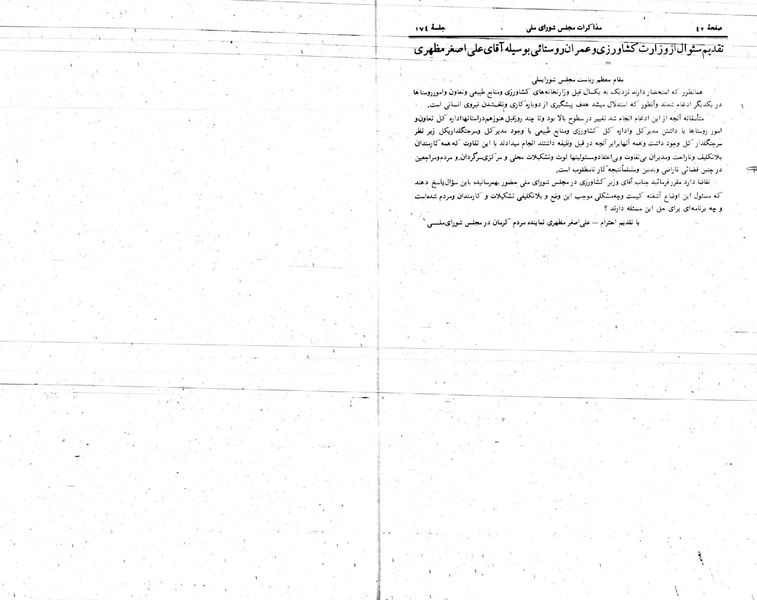 صفحهٔ ٤٢
مذاکرات مجلس شورای ملی
جلسهٔ ١٧٤
تقدیم سئوال از وزارت کشاورزی و عمران روستائی بوسیله آقای علی اصغر مظهری
مقام معظم ریاست مجلس شورایملی
همانطور که استحضار دارند نزدیک به یکسال قبل وزارتخانه‌های کشاورزی ومنابع طبیعی وتعاون وامورروستاها
در یکدیگر ادغام شدند وآنطور که استدلال میشد هدف پیشگیری از دوباره‌کاری وتلف‌شدن نیروی انسانی است.
متأسفانه آنچه از این ادغام انجام شد تغییر در سطوح بالا بود وتا چند روزقبل هنوزهم‌دراستانهااداره کل تعاون‌و
امور روستاها با داشتن مدیرکل واداره کل کشاورزی ومنابع طبیعی با وجود مدیرکل وسرجنگلداریکل زیر نظر
سرجنگلدار کل وجود داشت وهمه آنهابرابر آنچه در قبل وظیفه داشتند انجام میدادند با این تفاوت که همه‌کارمندان
بلاتکلیف وناراحت ومدیران بی‌تفاوت وبی‌اعتقادومسئولیتها لوث وتشکیلات محلی و مرکزی‌سرگردان‌و مردم‌ومراجعین
در چنین فضائی ناراضی وبدبین ومسلمأنتیجه کار نامطلوب است.
تقاضا دارد مقرر فرمائید جناب آقای وزیر کشاورزی در مجلس شورای ملی حضور بهمرسانیده باین سؤال‌پاسخ دهند
که مسئول این اوضاع آشفته کیست وچه‌مشکلی موجب این وضع و بلاتکلیفی تشکیلات و کارمندان ومردم شده‌است
و چه برنامه‌ای برای حل این مسئله دارند ؟
با تقدیم احترام — علی‌اصغر مظهری نماینده مردم کرمان در مجلس شورای‌ملسی